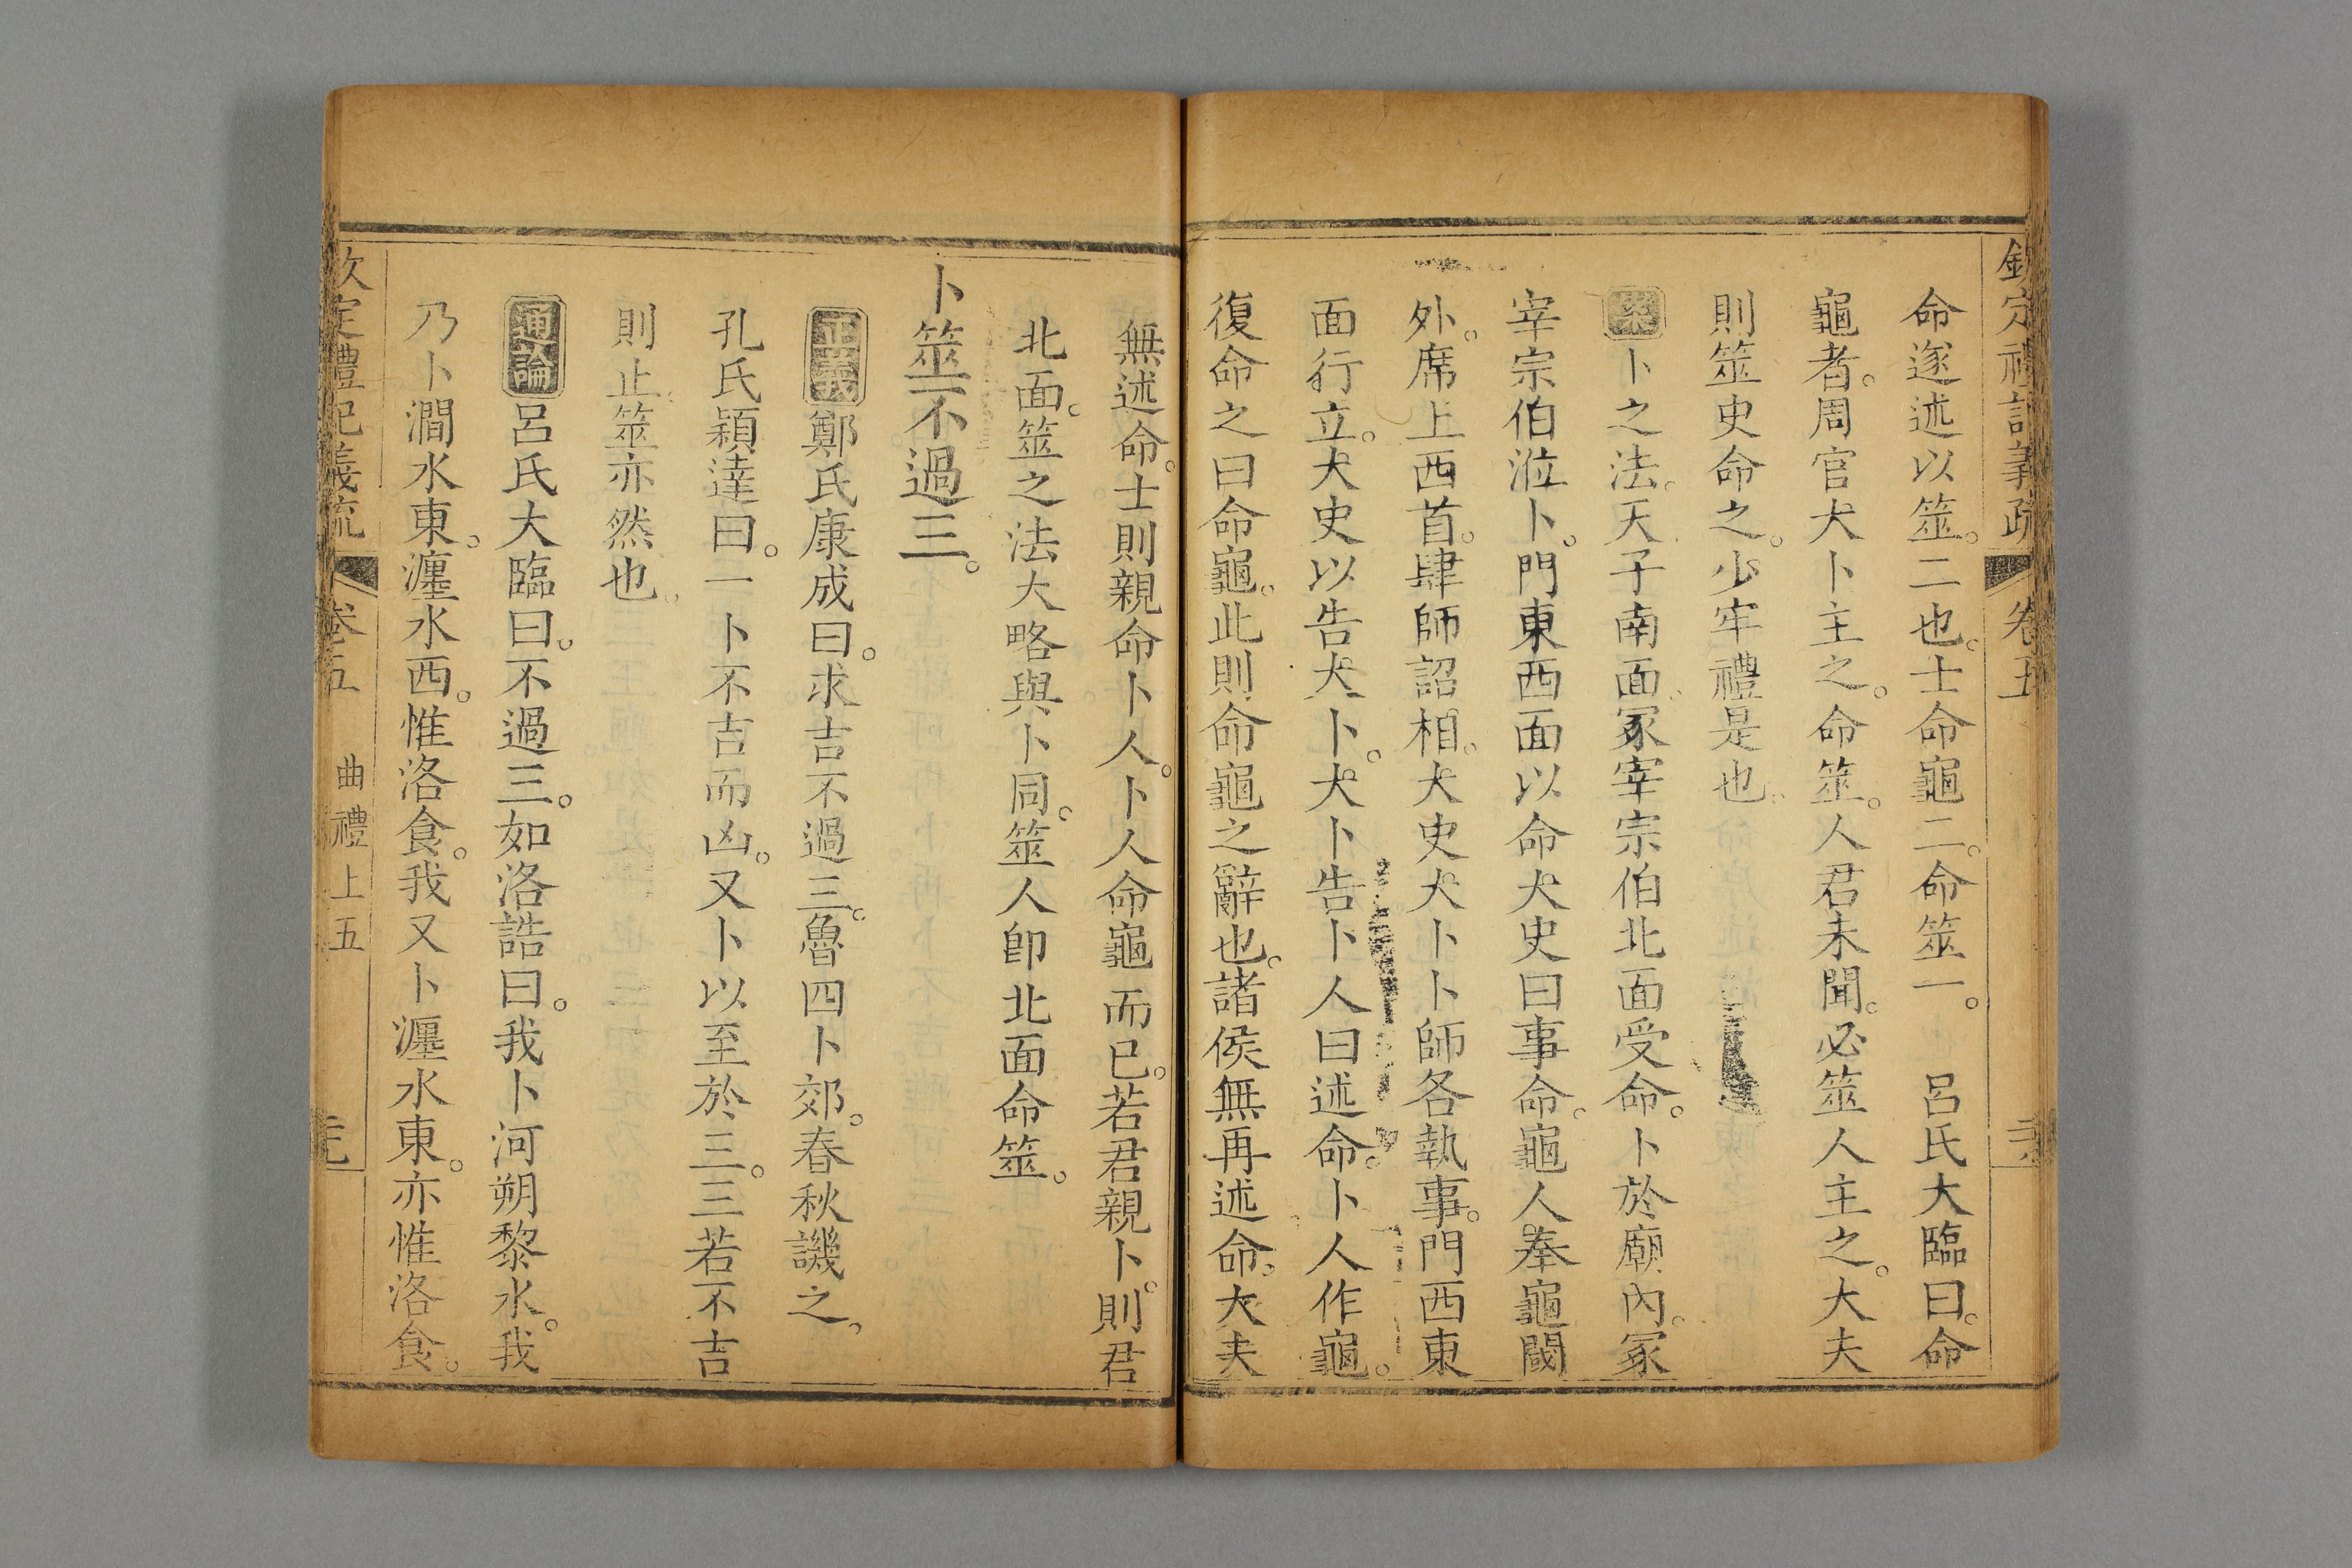 欽定禮記義疏 卷五
命遂述以筮。二也。士命龜二。命筮一。 呂氏大臨曰。命
龜者。周官大卜主之。命筮。人君未聞。必筮人主之。大夫
則筮史命之。少牢禮是也。
案卜之法。天子南面。冢宰宗伯北面受命。卜於廟內。冢
宰宗伯涖卜。門東西面以命大史曰事命。龜人奉龜閾
外。席上西首。肆師詔相。大史大卜卜師各執事。門西東
面行立。大史以告大卜。大卜告卜人曰述命。卜人作龜。
復命之曰命龜。此則命龜之辭也。諸侯無再述命。大夫
無述命。士則親命卜人。卜人命龜而已。若君親卜。則君
北面。筮之法大略與卜同。筮人卽北面命筮。
卜筮不過三。
正義鄭氏康成曰。求吉不過三。魯四卜郊。春秋譏之。
孔氏穎達曰。一卜不吉而凶。又卜以至於三。三若不吉
則止。筮亦然也。
通論呂氏大臨曰。不過三。如洛誥曰。我卜河朔黎水。我
乃卜澗水東。瀍水西。惟洛食。我又卜瀍水東。亦惟洛食。
欽定禮記義疏 卷五 曲禮上五 元